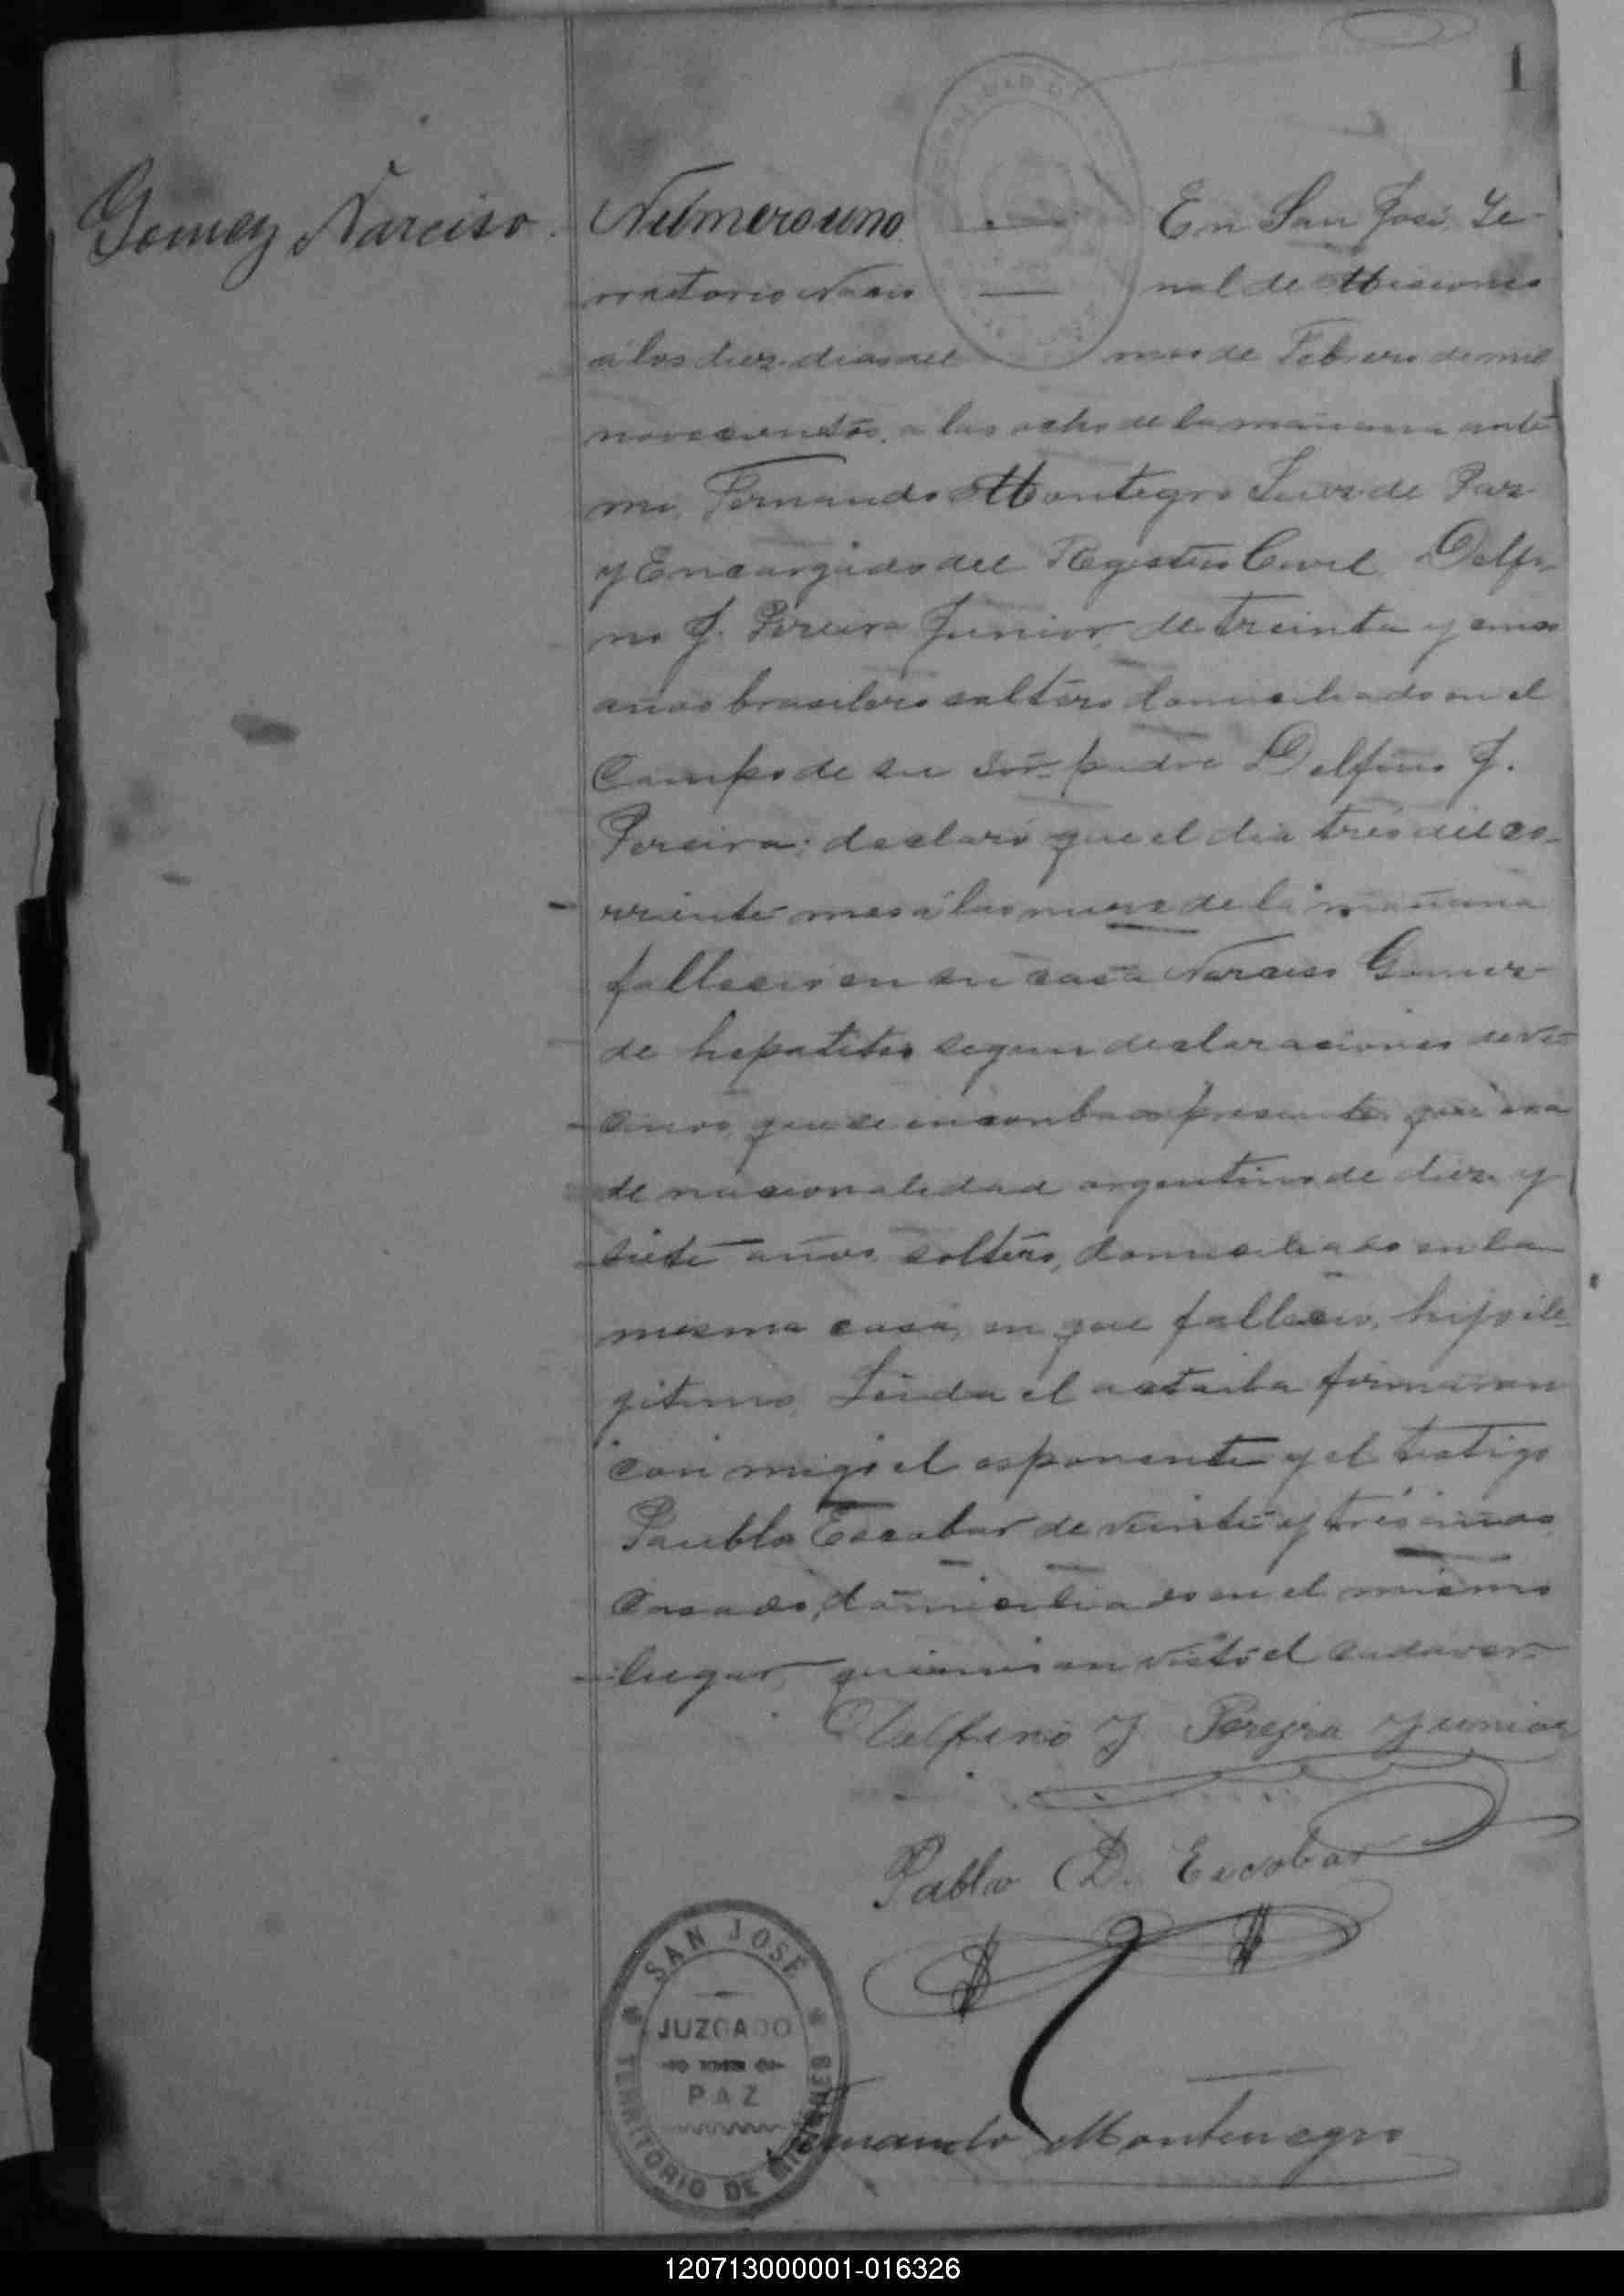 1
Gomez Narciso.
Número uno. En San José, Te-
rratorio Nacio nal de Misiones
a los diez dias del mes de Febrero de mil
novecientos, a las ocho de la mañana ante
mi, Fernando Montegro Juez de Paz
y Encargado del Registro Civil, Delfi-
no J. Pereira Junior, de treinta y cinco
años brasilero soltero domiciliado en el
Campo de su Sor. padre Delfino J.
Pereira; declaró que el dia tres del co-
rriente mes á las nueve de la mañana
fallecio en su casa Narciso Gomez
de hepatitis segun declaraciones de ve-
cinos, que se encontraban presente que era
de nacionalidad argentino de diez y
siete años, soltero, domiciliado en la
mesma casa, en que fallecio, hijo ile-
gitimo. Leida el acta la firmaron
con migo el esponente y el testigo
Paublo Escobar de veinte y tres años
Casado, domiciliado en el mismo
lugar, quienes an visto el cadaver
Delfino J. Pereira Junior
Pablo D. Escobar
SAN JOSÉ
JUZGADO
PAZ
TERRITORIO DE MISIONES
Fernando Montenegro
120713000001-016326